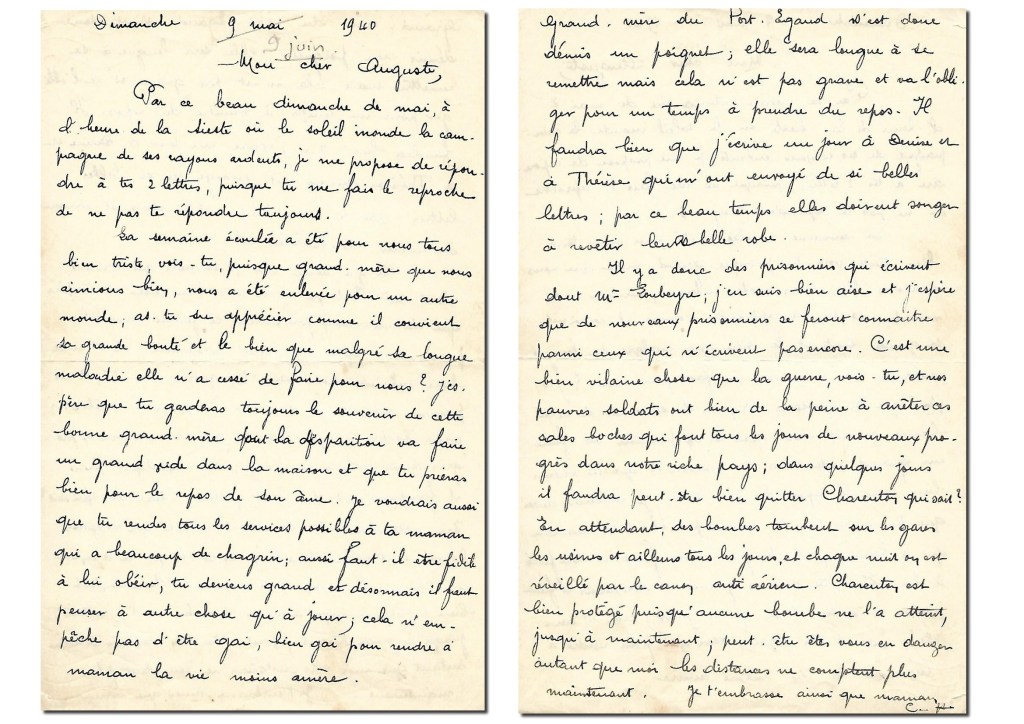 Dimanche 9 mai 1940
9 juin.
Mon cher Auguste,
Par ce beau dimanche de mai, à
l'heure de la sieste où le soleil inonde la cam-
pagne de ses rayons ardents, je me propose de répon-
dre à tes 2 lettres, puisque tu me fais le reproche
de ne pas te répondre toujours.
La semaine écoulée a été pour nous tous
bien triste, vois-tu, puisque grand-mère que nous
aimions bien, nous a été enlevée pour un autre
monde; as-tu su apprécier comme il convient
sa grande bonté et le bien que malgré sa longue
maladie elle n'a cessé de faire pour nous? J'es-
père que tu garderas toujours le souvenir de cette
bonne grand-mère dont la disparition va faire
un grand vide dans la maison et que tu prieras
bien pour le repos de son âme. Je voudrais aussi
que tu rendes tous les services possibles à ta maman
qui a beaucoup de chagrin; aussi faut-il être fidèle
à lui obéir, tu deviens grand et désormais il faut
penser à autre chose qu'à jouer; cela n'em-
pêche pas d'être gai, bien gai pour rendre à
maman la vie moins amère.
Grand-mère du Port. Egaud s'est donc
démis un poignet; elle sera longue à se
remettre mais cela n'est pas grave et va l'obli-
ger pour un temps à prendre du repos. Il
faudra bien que j'écrive un jour à Denise et
à Thérèse qui m'ont envoyé de si belles
lettres; par ce beau temps elles doivent songer
à revêtir leur belle robe.
Il y a donc des prisonniers qui écrivent
dont Mr Loubeyre; j'en suis bien aise et j'espère
que de nouveaux prisonniers se feront connaître
parmi ceux qui n'écrivent pas encore. C'est une
bien vilaine chose que la guerre, vois-tu, et nos
pauvres soldats ont bien de la peine à arrêter ces
sales boches qui font tous les jours de nouveaux pro-
grès dans notre riche pays; dans quelques jours
il faudra peut-être bien quitter Charenton qui sait?
En attendant, des bombes tombent sur les gares
les usines et ailleurs tous les jours, et chaque nuit on est
réveillé par le canon anti aérien. Charenton est
bien protégé puisqu'aucune bombe ne l'a atteint,
jusqu'à maintenant; peut-être êtes vous en danger
autant que moi les distances ne comptent plus
maintenant. Je t'embrasse ainsi que maman